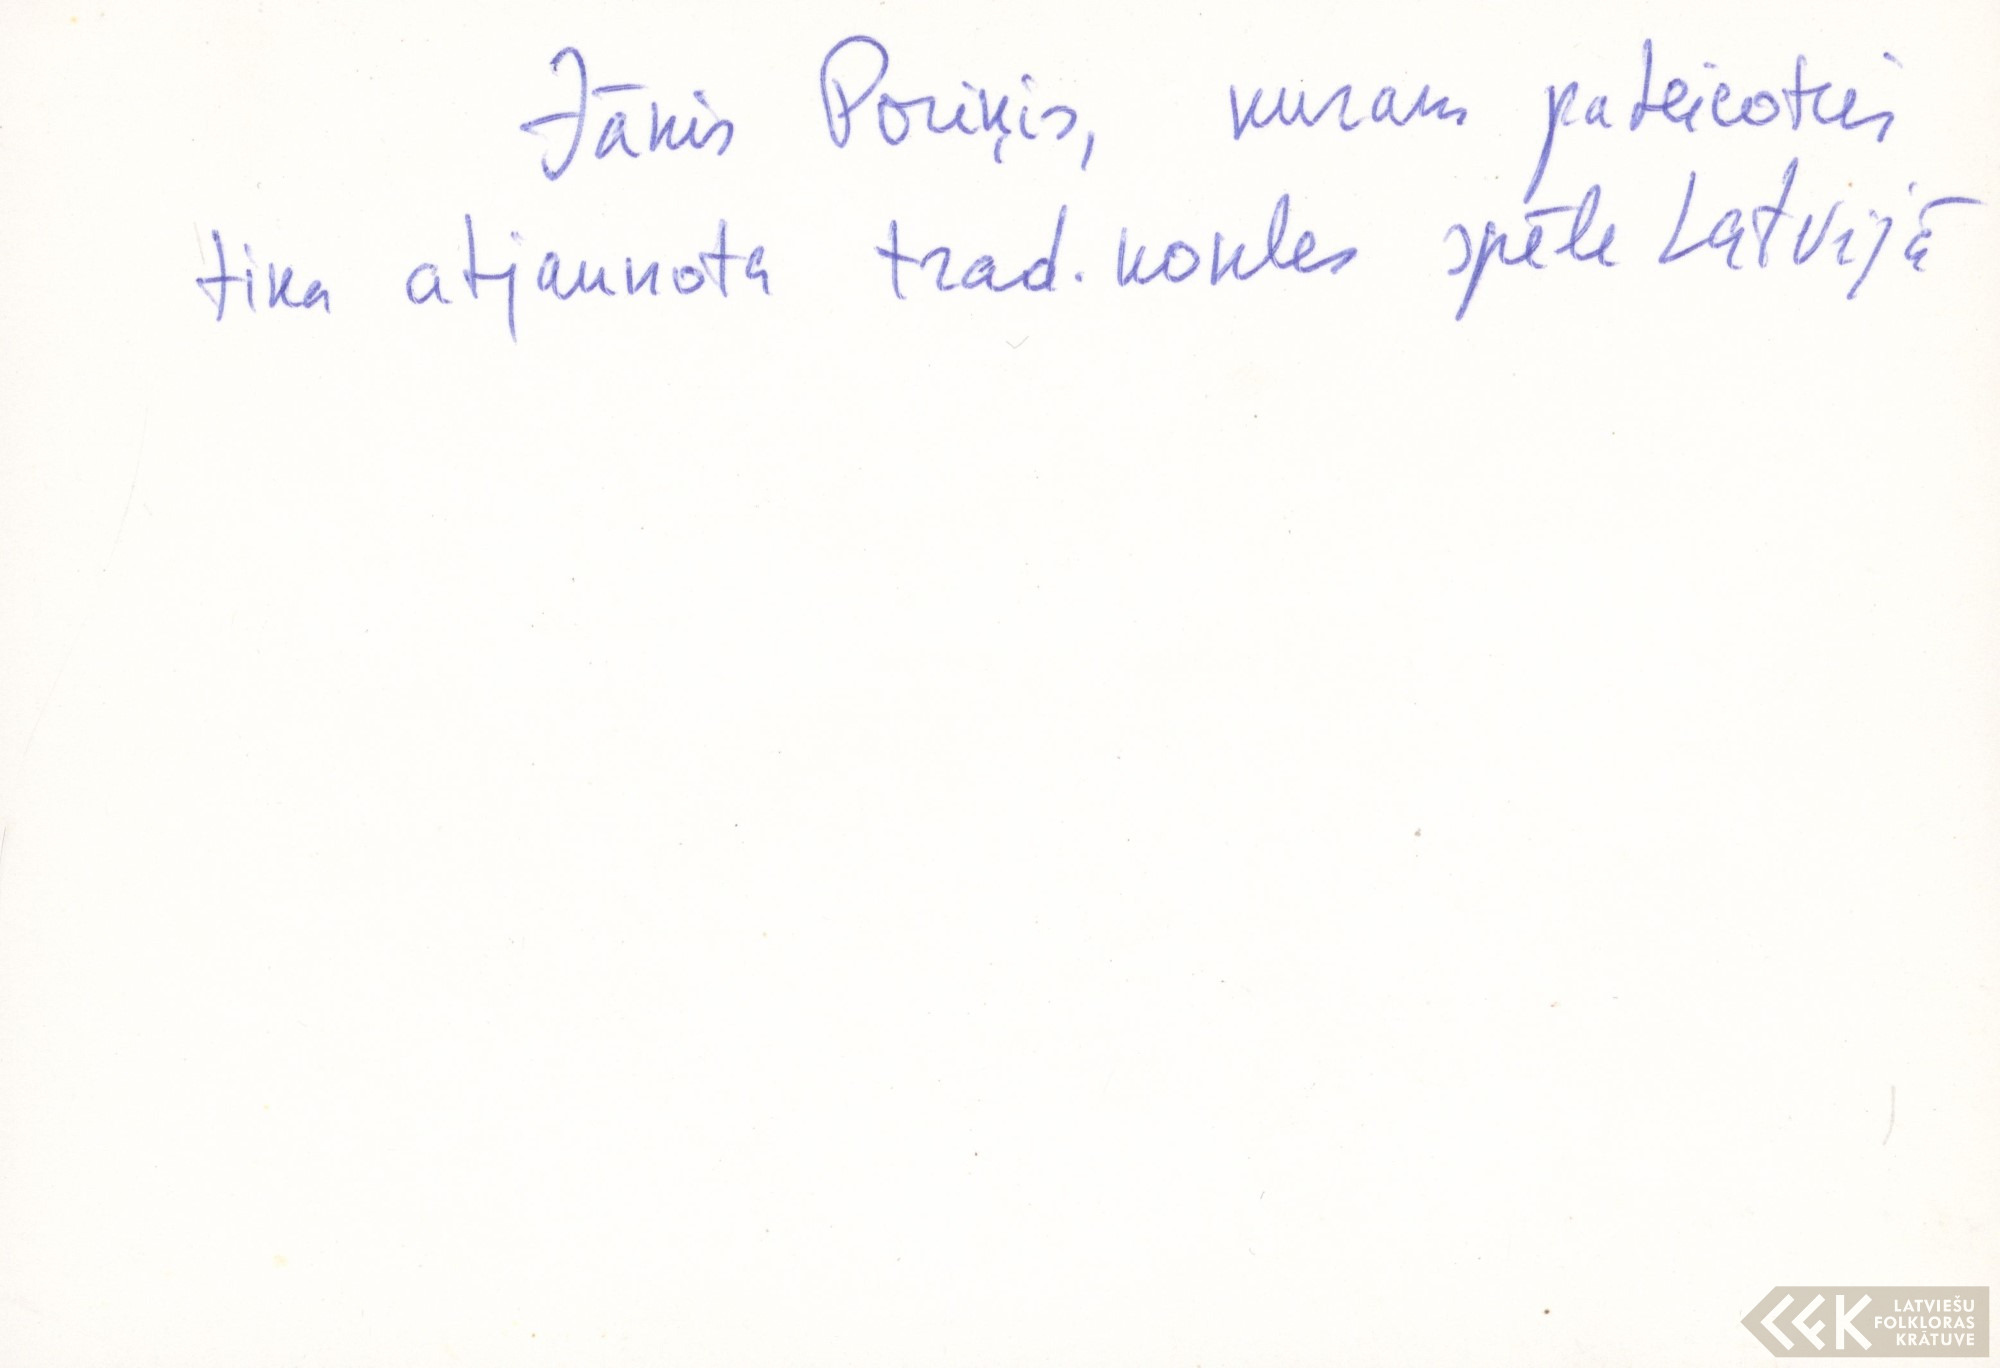 Jānis Poriķis, kuram pateicoties
tika atjaunota trad. kokles spēle Latvijā
LATVIEŠU
FOLKLORAS
KRĀTUVE